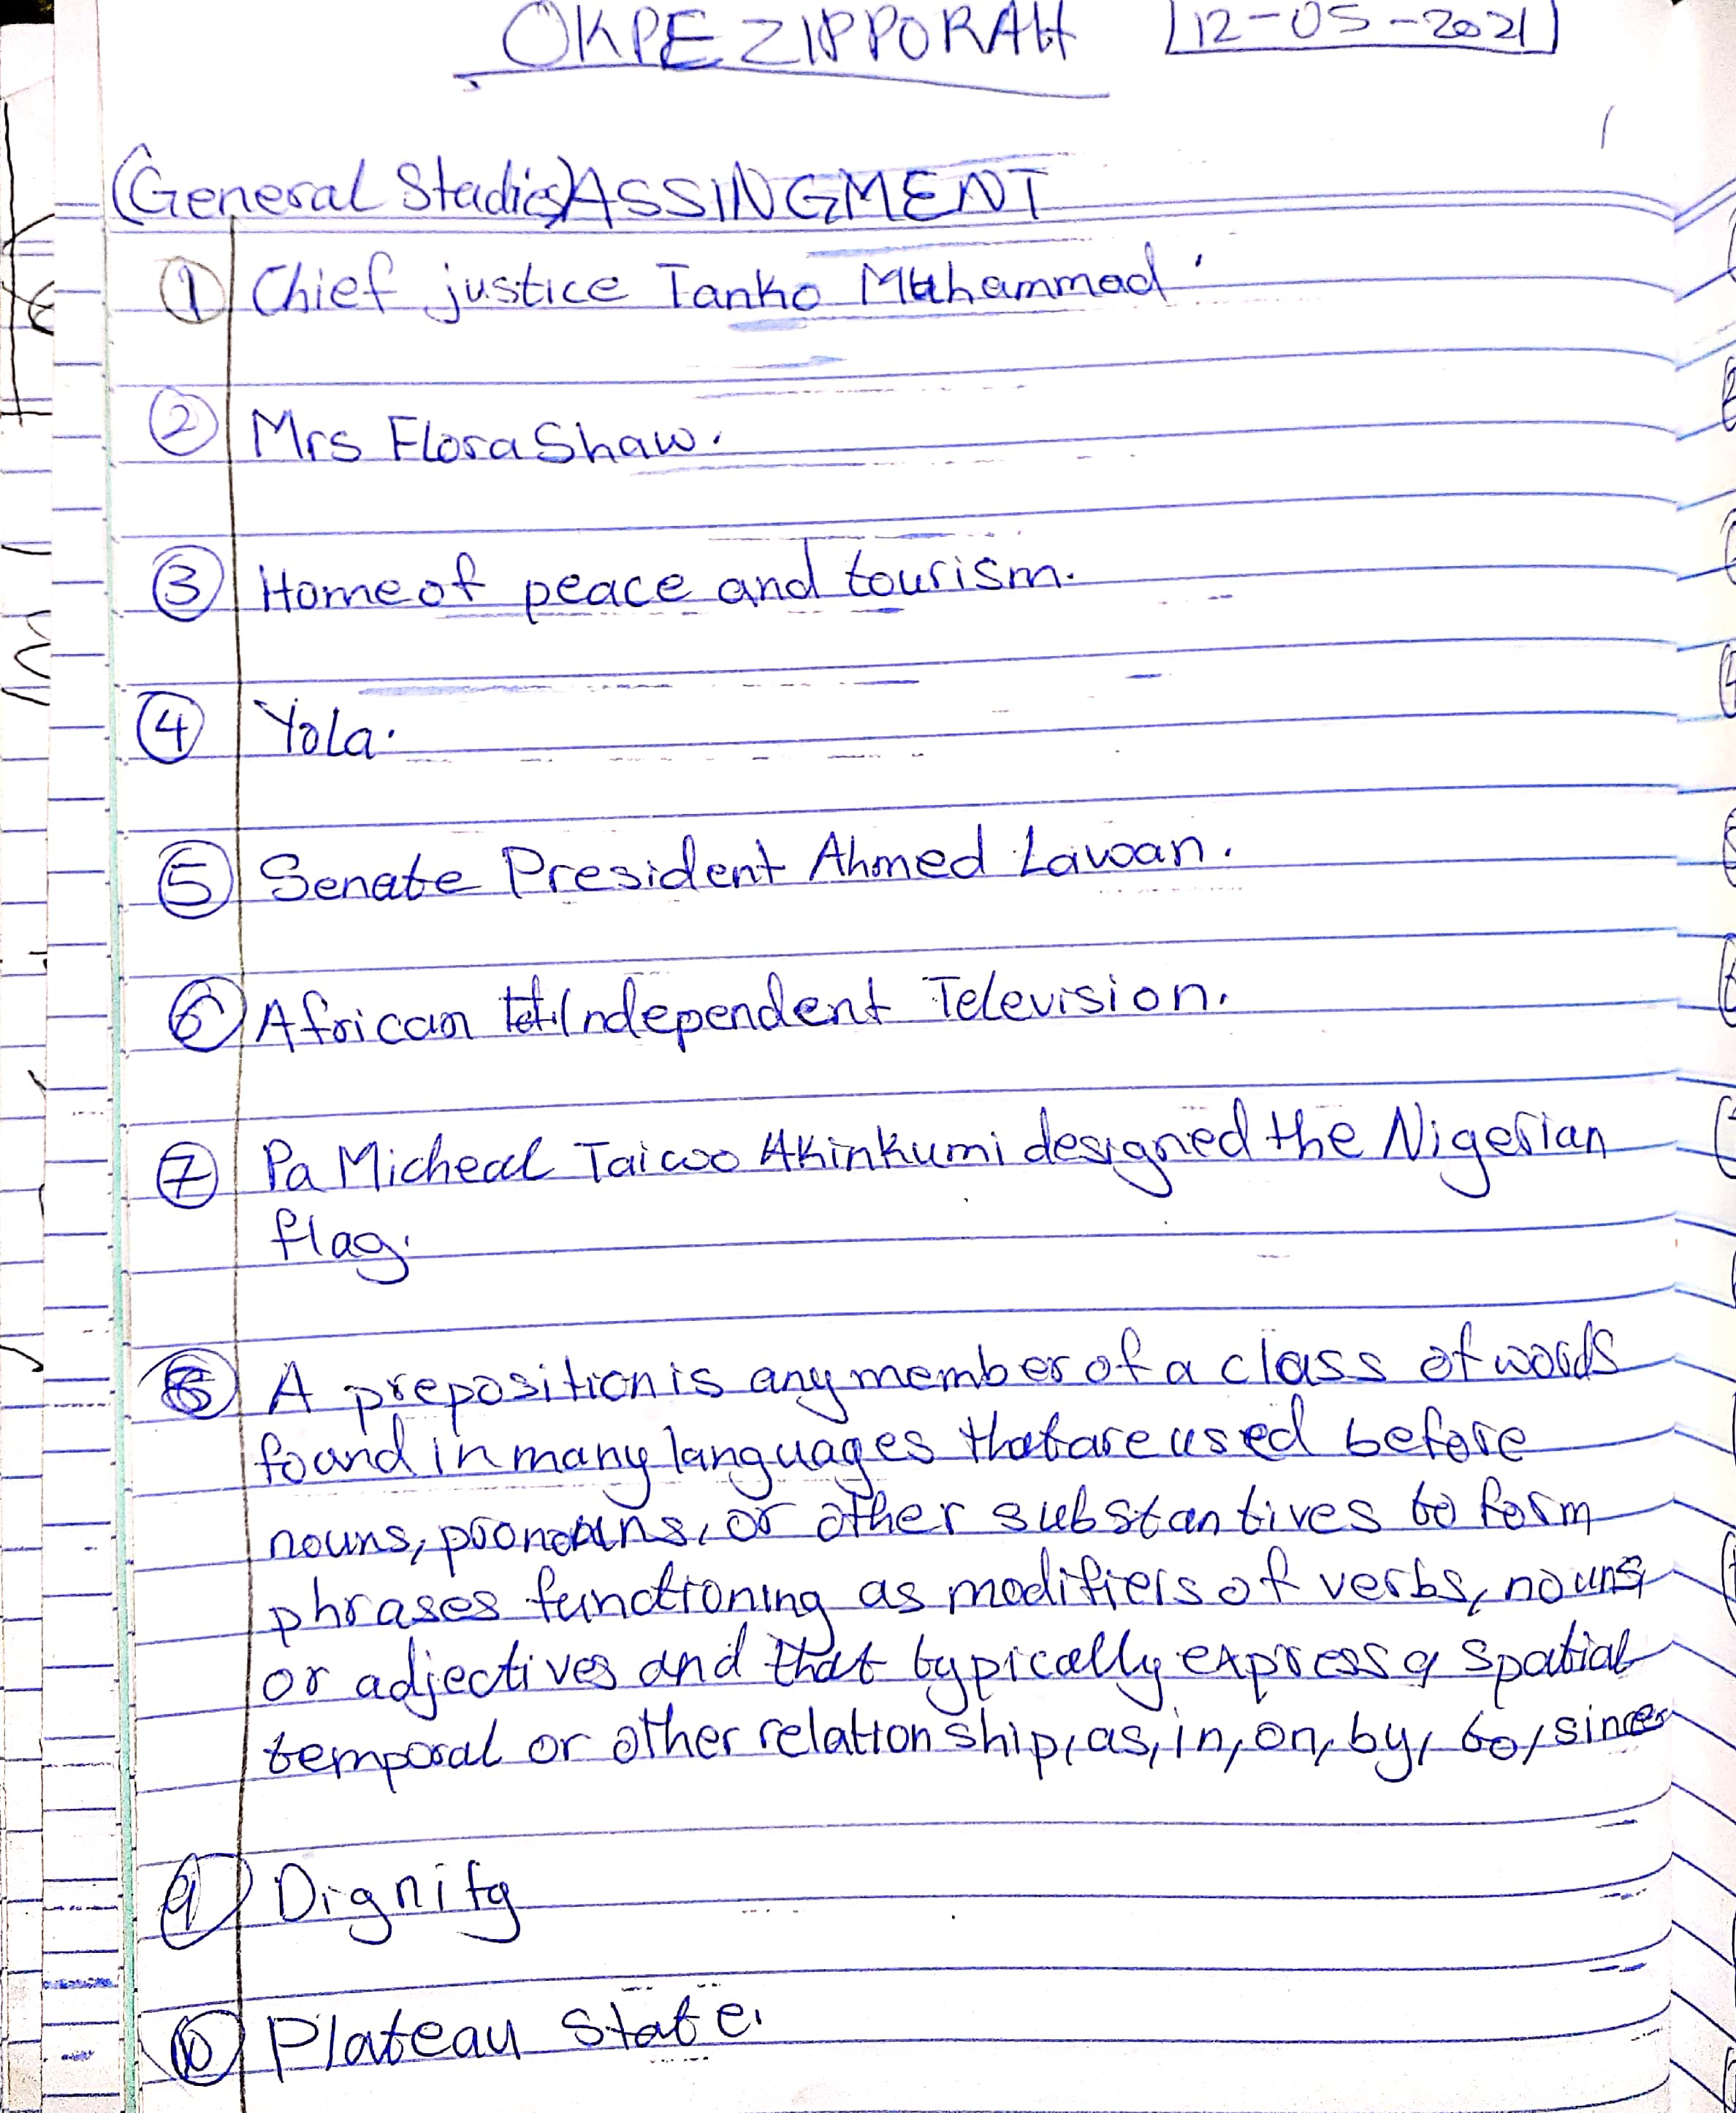 OKPE ZIPPORAH [12-05-2021]
(General Studies) ASSINGMENT
① Chief justice Tanko Muhammad.
② Mrs Flora Shaw.
③ Home of peace and tourism.
④ Yola.
⑤ Senate President Ahmed Lawan.
⑥ African Independent Television.
⑦ Pa Micheal Taiwo Akinkumi designed the Nigerian
flag.
⑧ A preposition is any member of a class of words
found in many languages that are used before
nouns, pronouns, or other substantives to form
phrases functioning as modifiers of verbs, nouns,
or adjectives and that typically express a spatial
temporal or other relationship, as, in, on, by, to, since
⑨ Dignity
⑩ Plateau State.